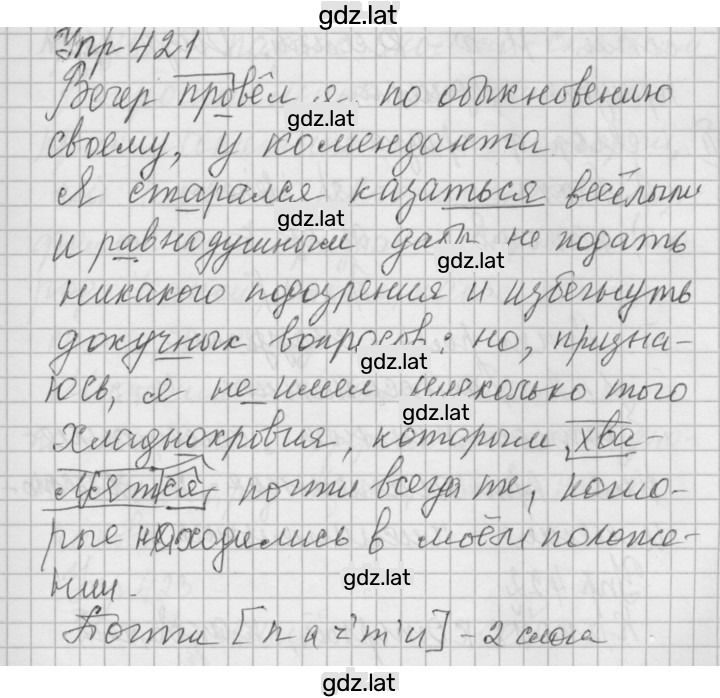 gdz.lat
Упр 421
Вечер провёл я по обыкновению
gdz.lat
своему, у коменданта
Я старался казаться весёлым
gdz.lat
и равнодушным дабы не подать
gdz.lat
никакого подозрения и избегнуть
докучных вопросов; но, призна-
gdz.lat
юсь, я не имел нисколько того
gdz.lat
хладнокровия, которым хва-
лятся почти всегда те, кото-
рые находились в моём положе-
gdz.lat
нии.
Почти [п а ч' т' и] - 2 слога
gdz.lat